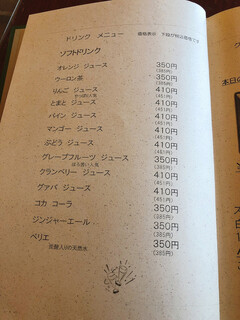 ドリンク メニュー 価格表示 下段が税込価格です
ソフトドリンク
オレンジ ジュース 350円
(385円)
ウーロン茶 350円
(385円)
りんご ジュース 410円
(451円)
とまと ジュース 410円
(451円)
パイン ジュース 410円
(451円)
マンゴー ジュース 410円
(451円)
ぶどう ジュース 410円
(451円)
グレープフルーツ ジュース 350円
(385円)
クランベリー ジュース 410円
(451円)
グァバ ジュース 410円
(451円)
コカ コーラ 350円
(385円)
ジンジャーエール 350円
(385円)
ペリエ 350円
炭酸入りの天然水 (385円)
本日の